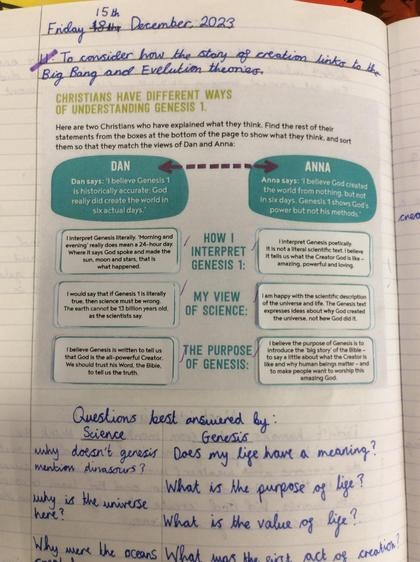 15th
Friday 18th December 2023
LI: To consider how the story of creation links to the
Big Bang and Evelution theories.
CHRISTIANS HAVE DIFFERENT WAYS
OF UNDERSTANDING GENESIS 1.
Here are two Christians who have explained what they think. Find the rest of their
statements from the boxes at the bottom of the page to show what they think, and sort
them so that they match the views of Dan and Anna:
DAN
Dan says: 'I believe Genesis 1
is historically accurate: God
really did create the world in
six actual days.'
ANNA
Anna says: 'I believe God created
the world from nothing, but not
in six days. Genesis 1 shows God's
power but not his methods.'
I interpret Genesis literally. 'Morning and
evening' really does mean a 24-hour day.
Where it says God spoke and made the
sun, moon and stars, that is
what happened.
HOW I
INTERPRET
GENESIS 1:
I interpret Genesis poetically.
It is not a literal scientific text. I believe
it tells us what the Creator God is like –
amazing, powerful and loving.
I would say that if Genesis 1 is literally
true, then science must be wrong.
The earth cannot be 13 billion years old,
as the scientists say.
MY VIEW
OF SCIENCE:
I am happy with the scientific description
of the universe and life. The Genesis text
expresses ideas about why God created
the universe, not how God did it.
I believe Genesis is written to tell us
that God is the all-powerful Creator.
We should trust his Word, the Bible,
to tell us the truth.
THE PURPOSE
OF GENESIS:
I believe the purpose of Genesis is to
introduce the 'big story' of the Bible –
to say a little about what the Creator is
like and why human beings matter – and
to make people want to worship this
amazing God.
Questions best answered by:
Science
Genesis
why doesn't genesis
mention dinasours?
why is the universe
here?
Why were the oceans
Does my life have a meaning?
What is the purpose of life?
What is the value of life?
What was the first act of creation?